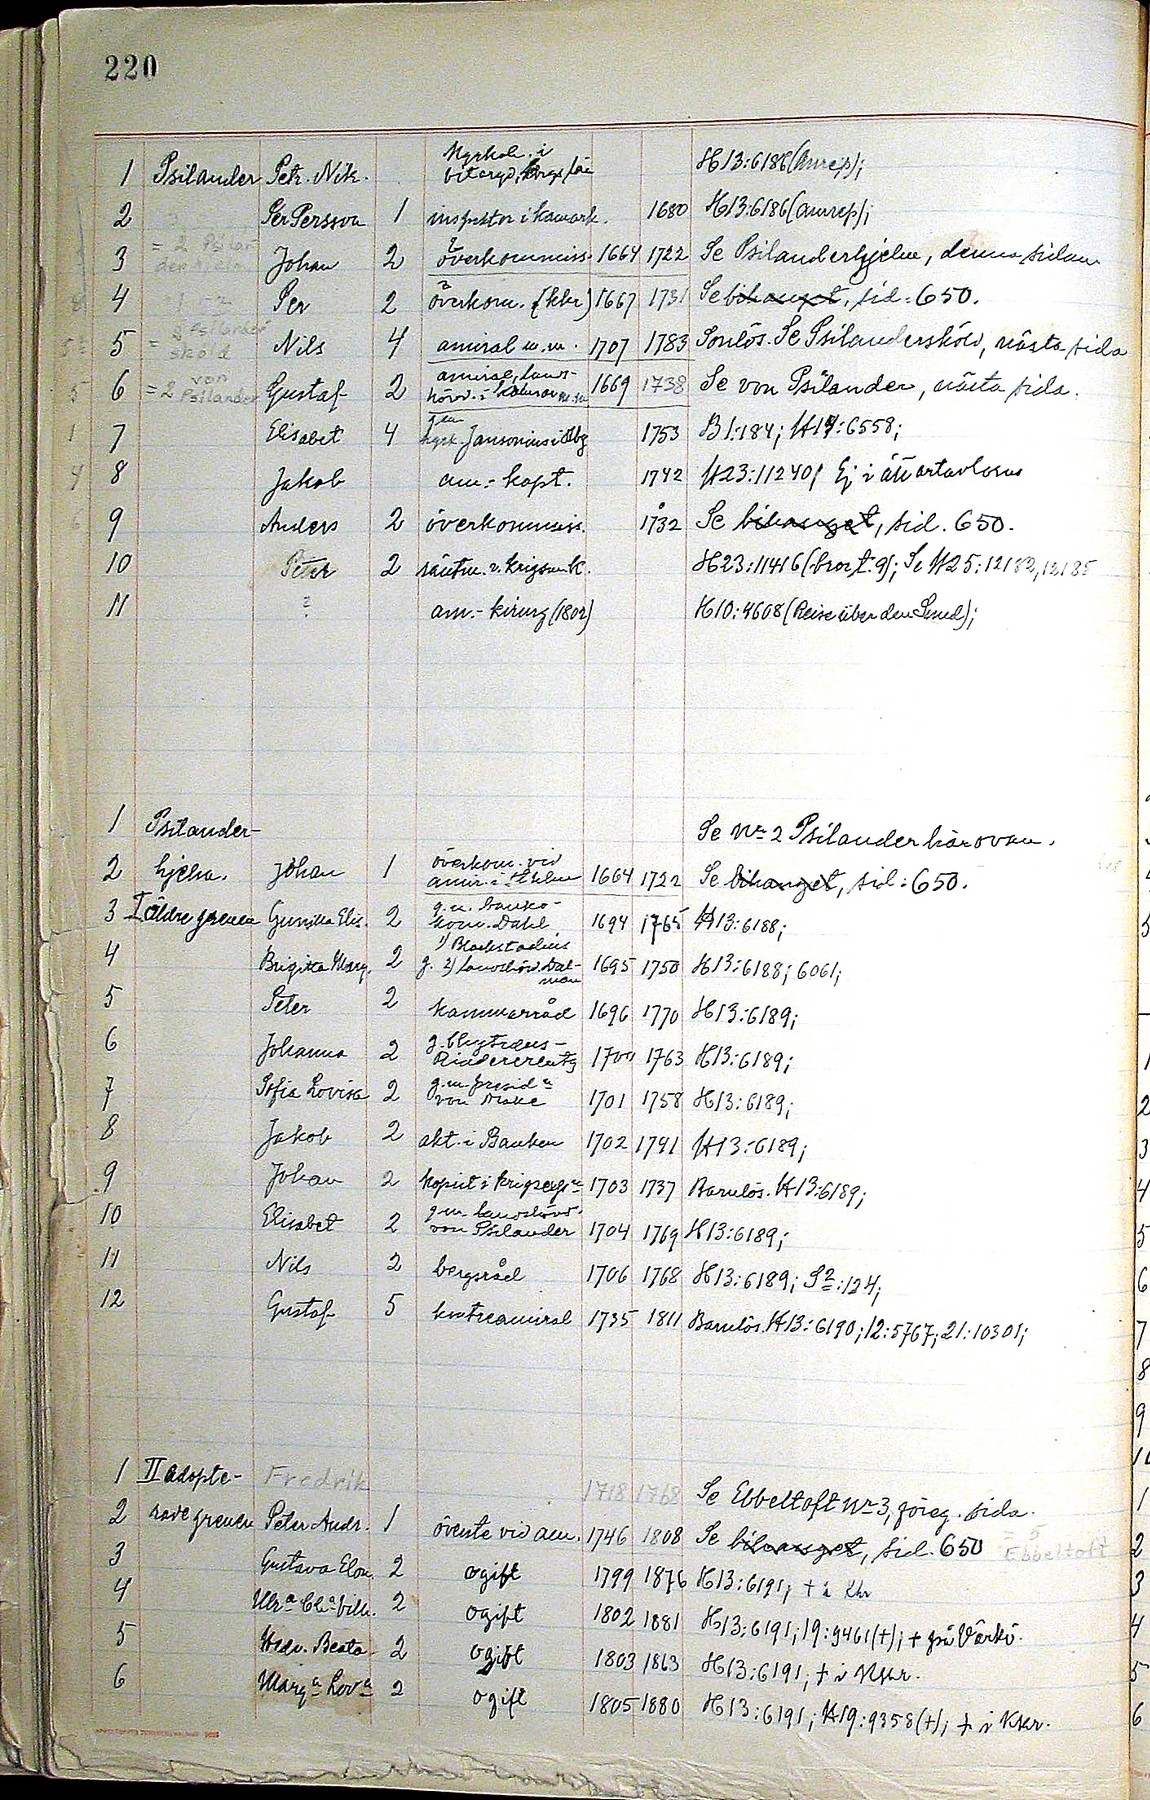 220
1 Psilander Petr. Nik. Kyrkoh. i H13:6186 (Anrep);
2 Per Persson 1 inspektor i 1680 H13:6186 (Anrep);
3 Johan 2 överkommiss. 1664 1722 Se Psilanderhjelm, denna sidan
4 Per 2 överkom. (kkr) 1667 1731 Se bihanget, sid. 650.
= 2 Psilander sköld
5 Nils 4 amiral m.m. 1707 1783 Sonlös. Se Psilandersköld, nästa sida
= 2 von Psilander
6 Gustaf 2 amiral, lands- 1669 1738 Se von Psilander, nästa sida.
7 Elisabet 4 1753 B1:184; H17:6558;
8 Jakob am.-kapt. 1742 H23:11240; Ej i ättartavlorna
9 Anders 2 överkommiss. 1732 Se bihanget, sid. 650.
10 Peter 2 räntm. v. krigsm.k. H23:11416 (bror t. 9); Se H25:12182,12185
11 ? am.-kirurg (1802) H10:4608 (Reise über den Sund);
1 Psilander- Se Nr 2 Psilander här ovan.
2 hjelm. Johan 1 överkom. vid 1664 1722 Se bihanget, sid. 650.
3 I äldre grenen Gunilla Elis. 2 g.m. banko- kom. Dahl 1694 1765 H13:6188;
4 Brigitta Marg. 2 g. 1) Blackstadius 2) landshövd. Dal- man 1695 1750 H13:6188; 6061;
5 Peter 2 kammarråd 1696 1770 H13:6189;
6 Johanna 2 1700 1763 H13:6189;
7 Sofia Lovisa 2 g.m. presid. 1701 1758 H13:6189;
8 Jakob 2 akt. i Banken 1702 1741 H13:6189;
9 Johan 2 kopist i 1703 1737 Barnlös. H13:6189;
10 Elisabet 2 g.m. landshövd. von Psilander 1704 1769 H13:6189;
11 Nils 2 bergsråd 1706 1768 H13:6189; S2:124;
12 Gustaf 5 kontreamiral 1735 1811 Barnlös. H13:6190; 12:5767; 21:10301;
1 II adopte- Fredrik 1718 1768 Se Ebbeltoft Nr 3, föreg. sida.
2 rade grenen Peter Andr. 1 övlte vid am. 1746 1808 Se bihanget, sid. 650 = 5 Ebbeltoft
3 Gustava Eleon. 2 ogift 1799 1876 H13:6191; † i Kkr
4 Ulra Cha Vilh. 2 ogift 1802 1881 H13:6191; 19:9461(†); † på Värkö.
5 Hedv. Beata 2 ogift 1803 1863 H13:6191; † i Kkr.
6 Marga Lova 2 ogift 1805 1880 H13:6191; H19:9358(†); † i Kkr.